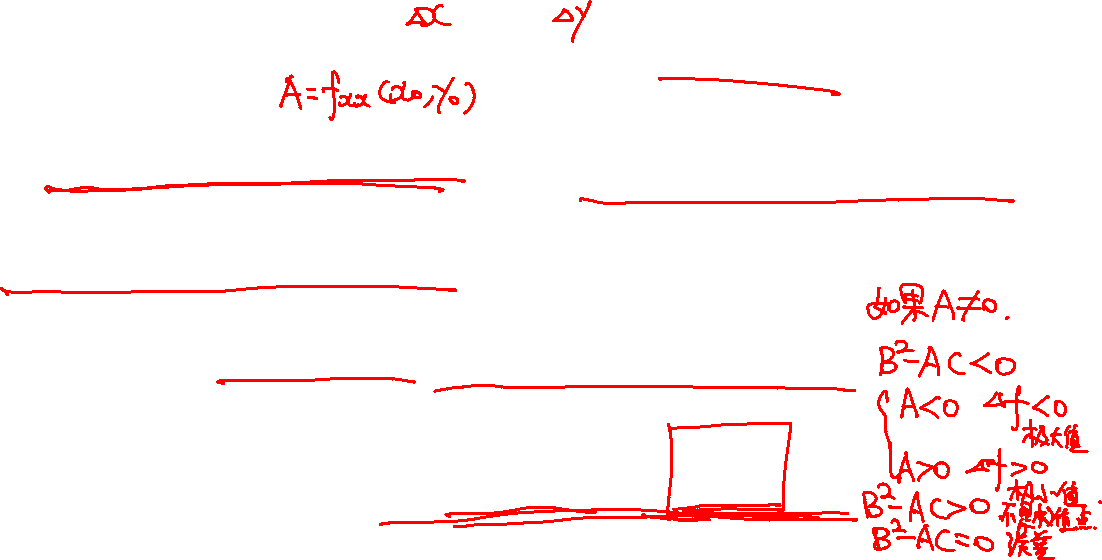 Δx Δy
A=fxx(x0,y0)
如果A≠0.
B²-AC<0
A<0 Δf<0
极大值
A>0 Δf>0
极小值.
B²-AC>0 不是极值点.
B²-AC=0 误差